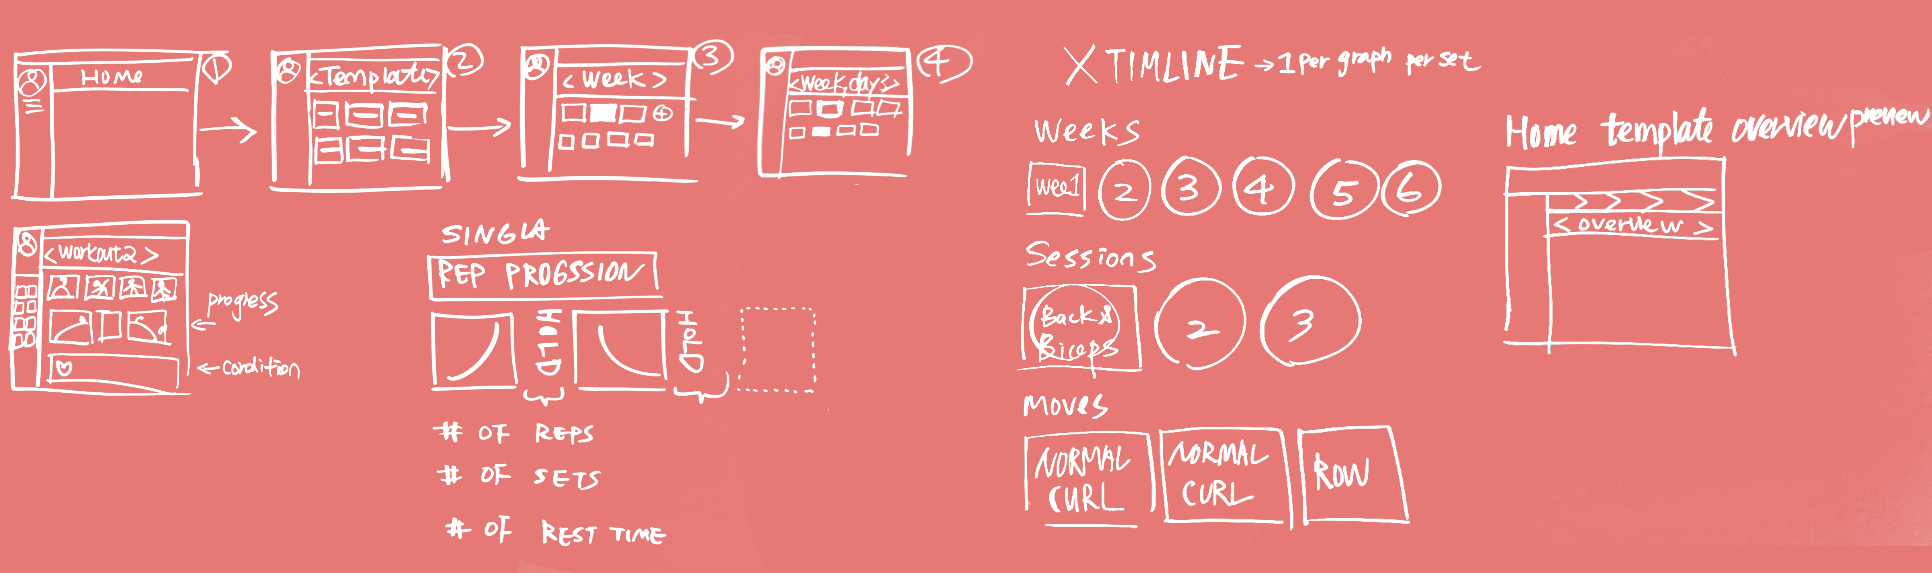 Home
1
<Template>
2
<Week>
3
<Week,day3>
4
<workout2>
progress
cordition
SINGLA
REP PROGSSION
HOLD
HOLD
# OF REPS
# OF SETS
# OF REST TIME
X TIMLINE → 1 per graph per set
Weeks
wee1 2 3 4 5 6
Sessions
Back &
Biceps
2 3
Moves
NORMAL
CURL
NORMAL
CURL
ROW
Home template overview preview
< overview >